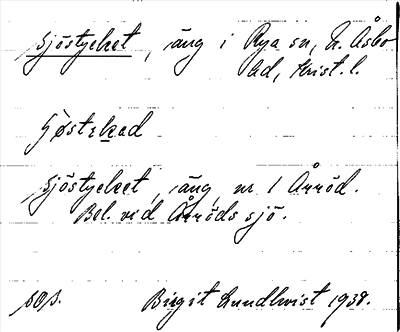 Sjöstycket, äng i Rya sn, N. Åsbo
hd, Krist. l.
Sjöstycket, äng, nr 1 Årröd.
Bel. vid Årröds sjö.
Birgit Lundkvist 1938.